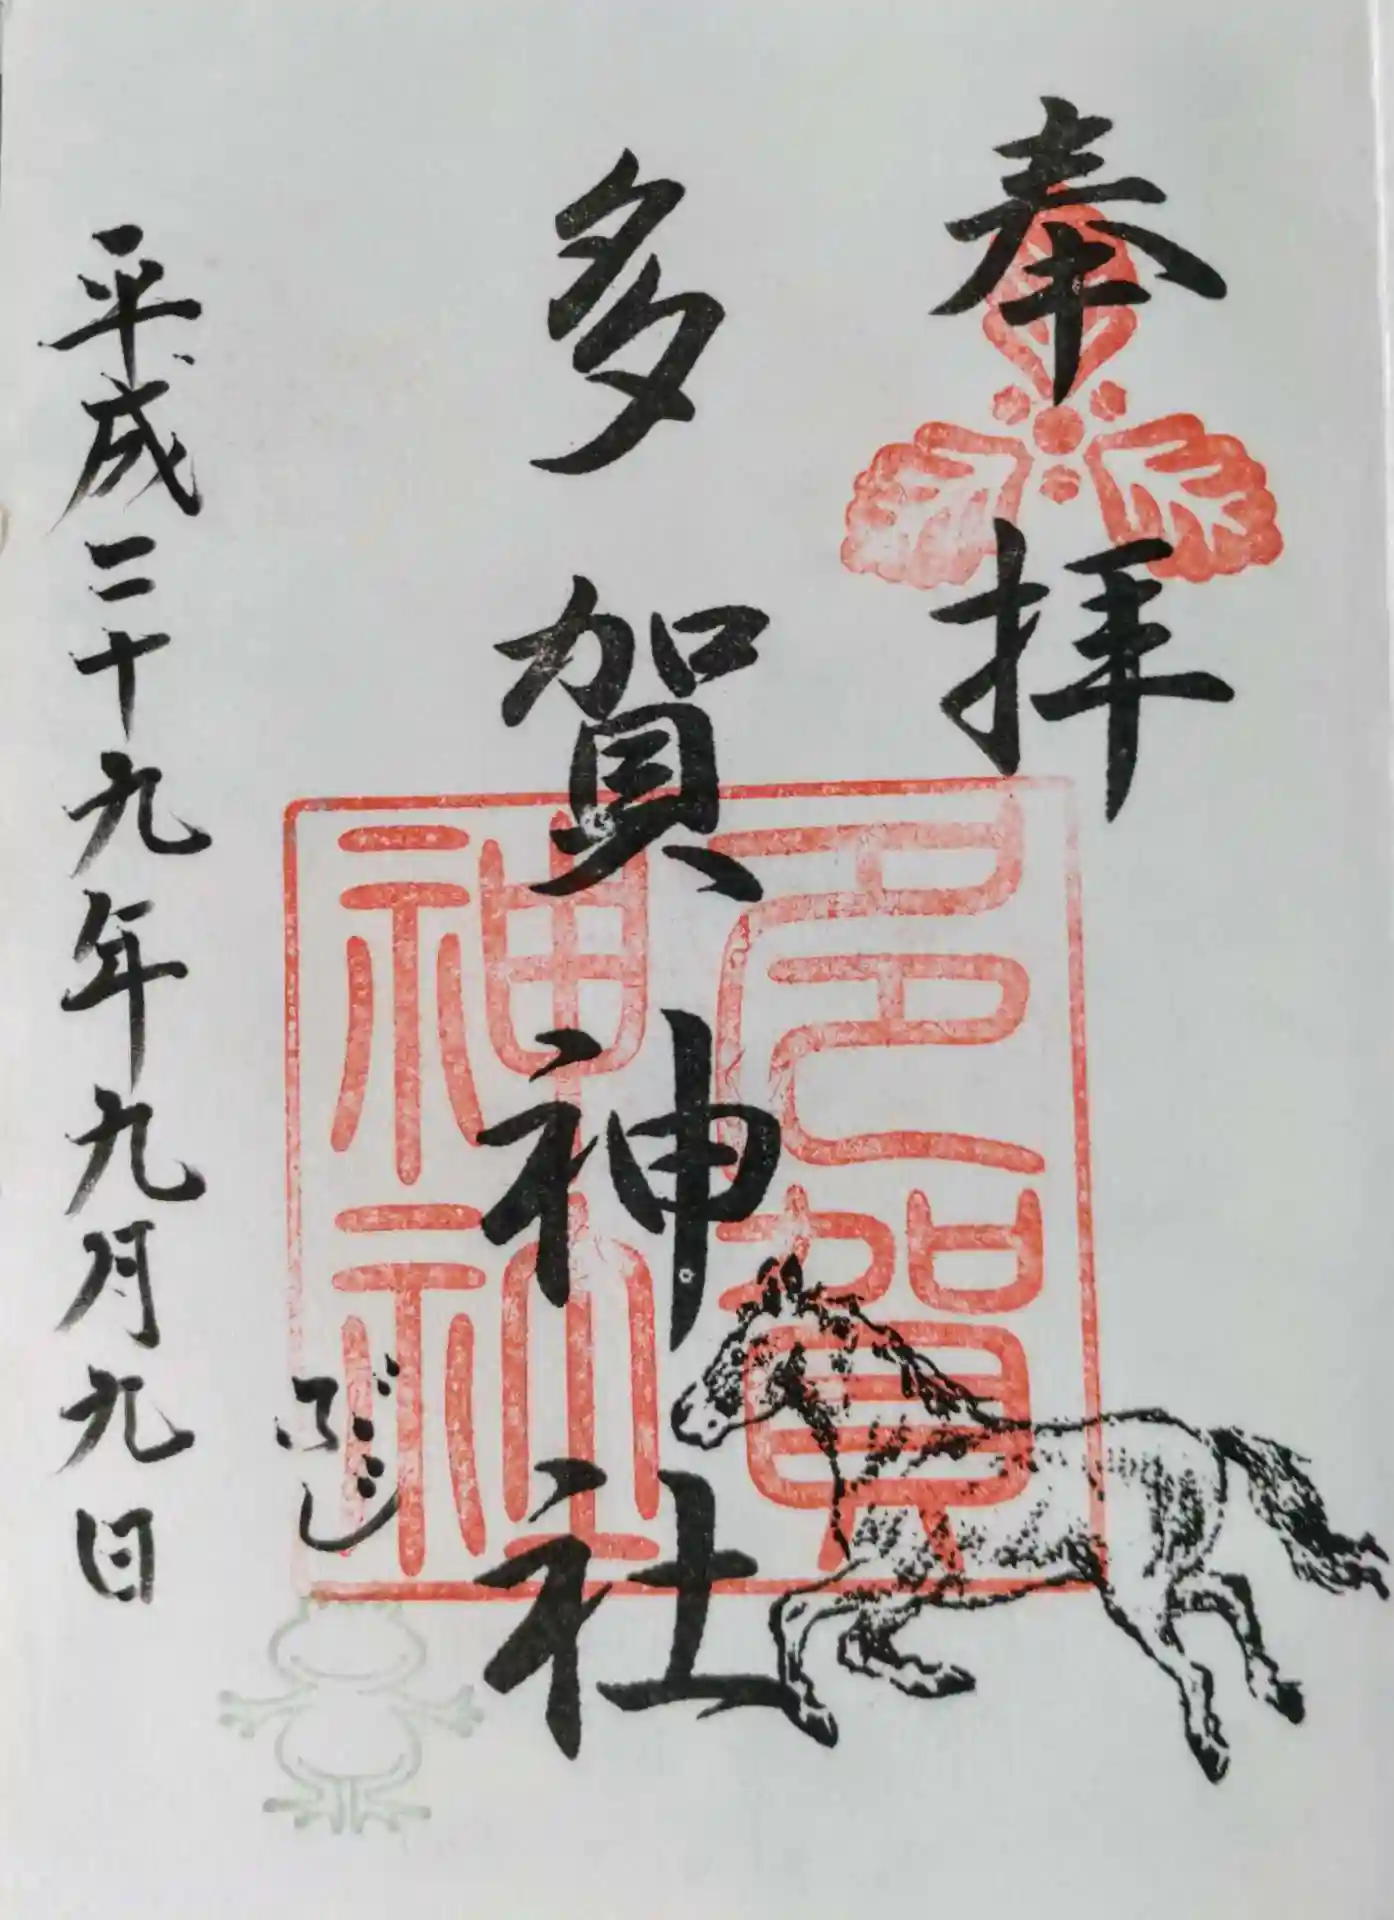 奉拝
多賀神社
多賀
神社
ぶじ
平成二十九年九月九日